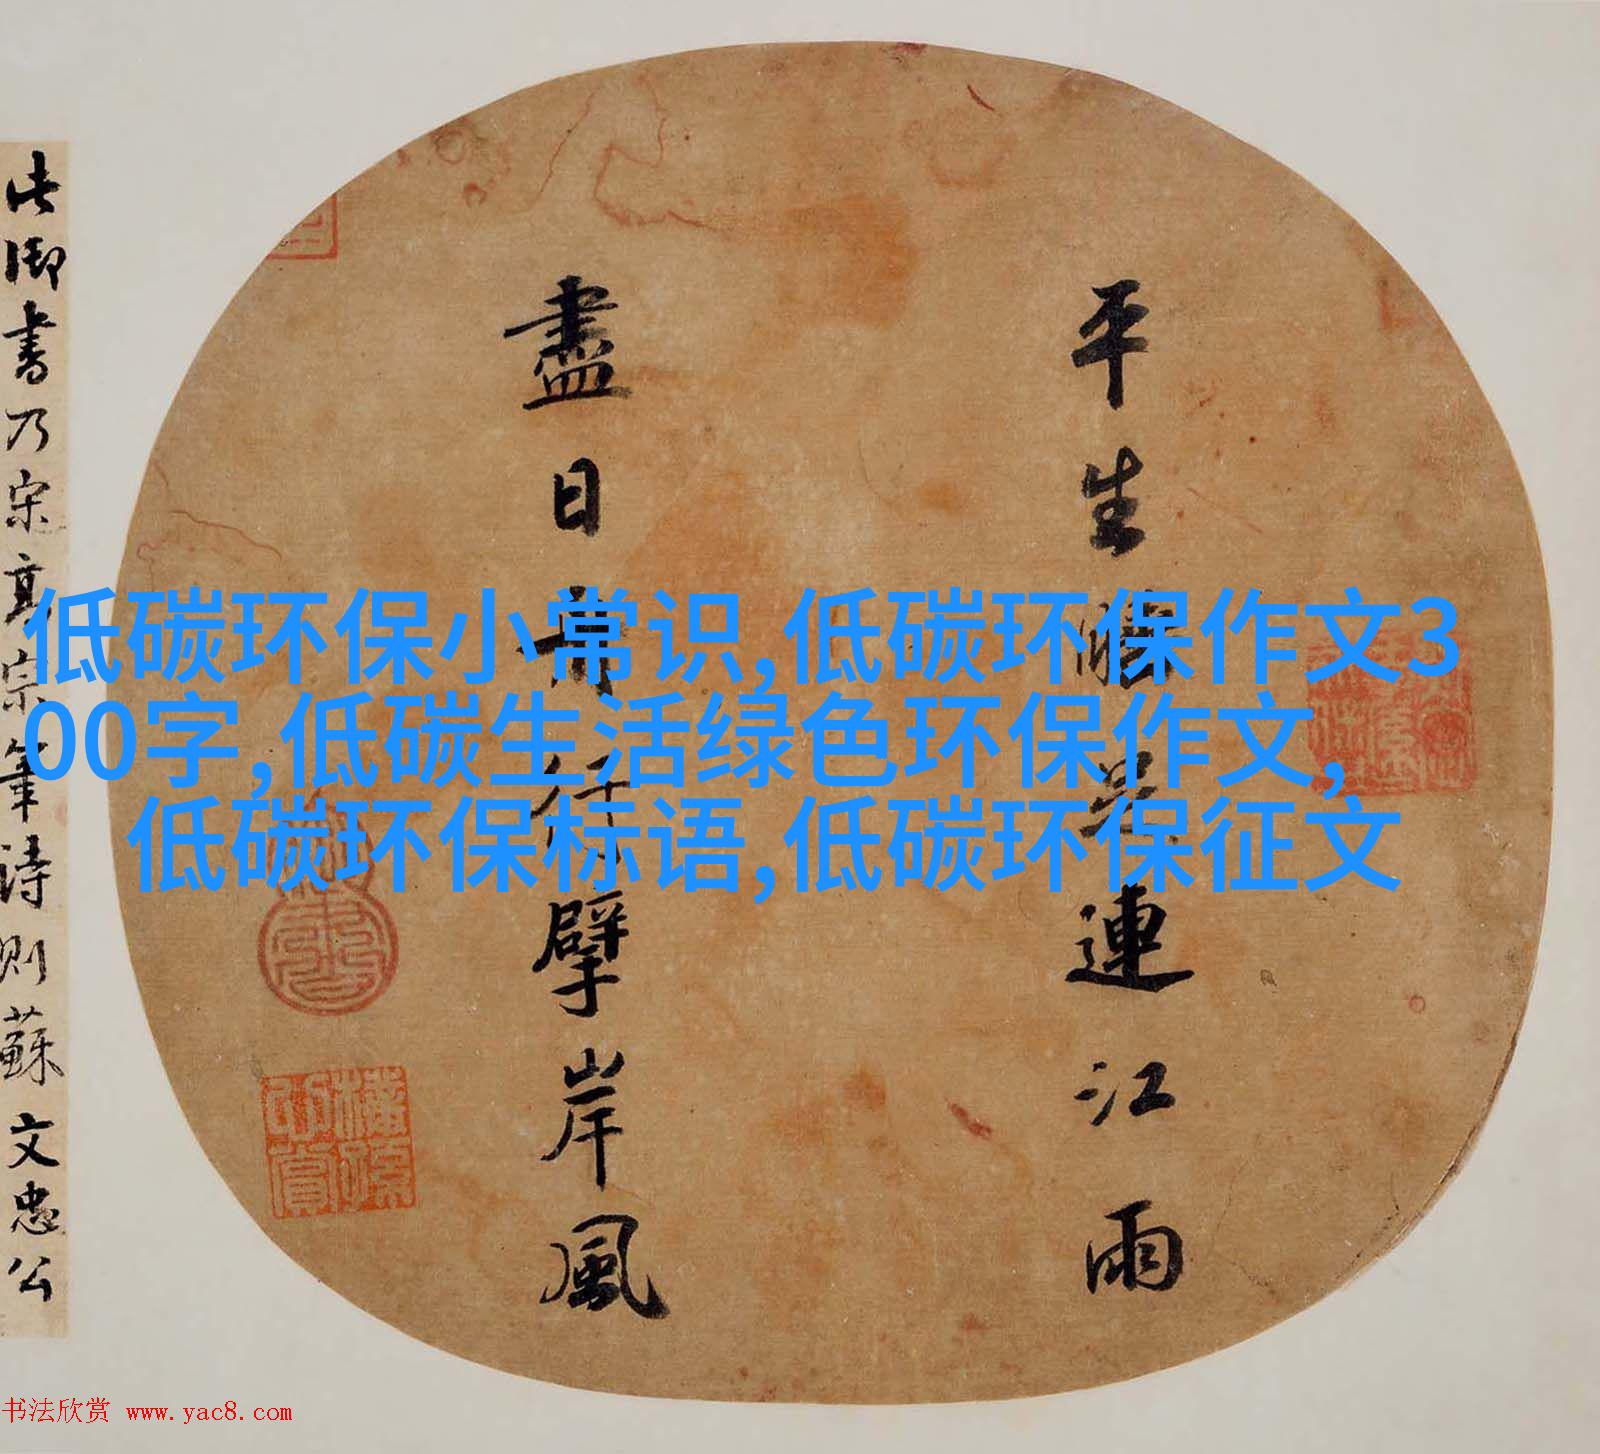 平生睡足連江雨
盡日舟行擘岸風
此御書乃宋高宗筆詩則蘇文忠公
低碳环保小常识,低碳环保作文3
00字,低碳生活绿色环保作文,
低碳环保标语,低碳环保征文
书法欣赏 www.yac8.com